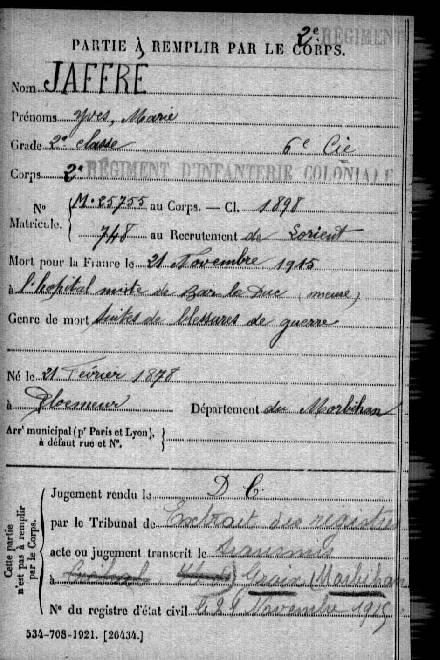 2e REGIMENT
PARTIE À REMPLIR PAR LE CORPS.
Nom JAFFRÉ
Prénoms Yves, Marie
Grade 2e classe 6e Cie
Corps 2e RÉGIMENT D'INFANTERIE COLONIALE
No Matricule. { M. 25755 au Corps. — Cl. 1898
748 au Recrutement de Lorient
Mort pour la France le 21 Novembre 1915
à l'hopital mixte de Bar le Duc (meuse)
Genre de mort suites de blessures de guerre
Né le 21 Février 1878
à Ploemeur Département du Morbihan
Arrt municipal (pr Paris et Lyon),
à défaut rue et No.
Cette partie n'est pas à remplir par le Corps.
Jugement rendu le D C
par le Tribunal de Extrait des registres
acte ou jugement transcrit le transmis
à Groix (Morbihan
No du registre d'état civil Novembre 1915
534-708-1921. [26434.]